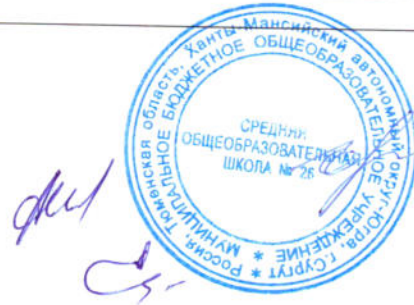 Россия, Тюменская область, Ханты-Мансийский автономный округ-Югра, г.Сургут *
МУНИЦИПАЛЬНОЕ БЮДЖЕТНОЕ ОБЩЕОБРАЗОВАТЕЛЬНОЕ УЧРЕЖДЕНИЕ *
СРЕДНЯЯ
ОБЩЕОБРАЗОВАТЕЛЬНАЯ
ШКОЛА № 26